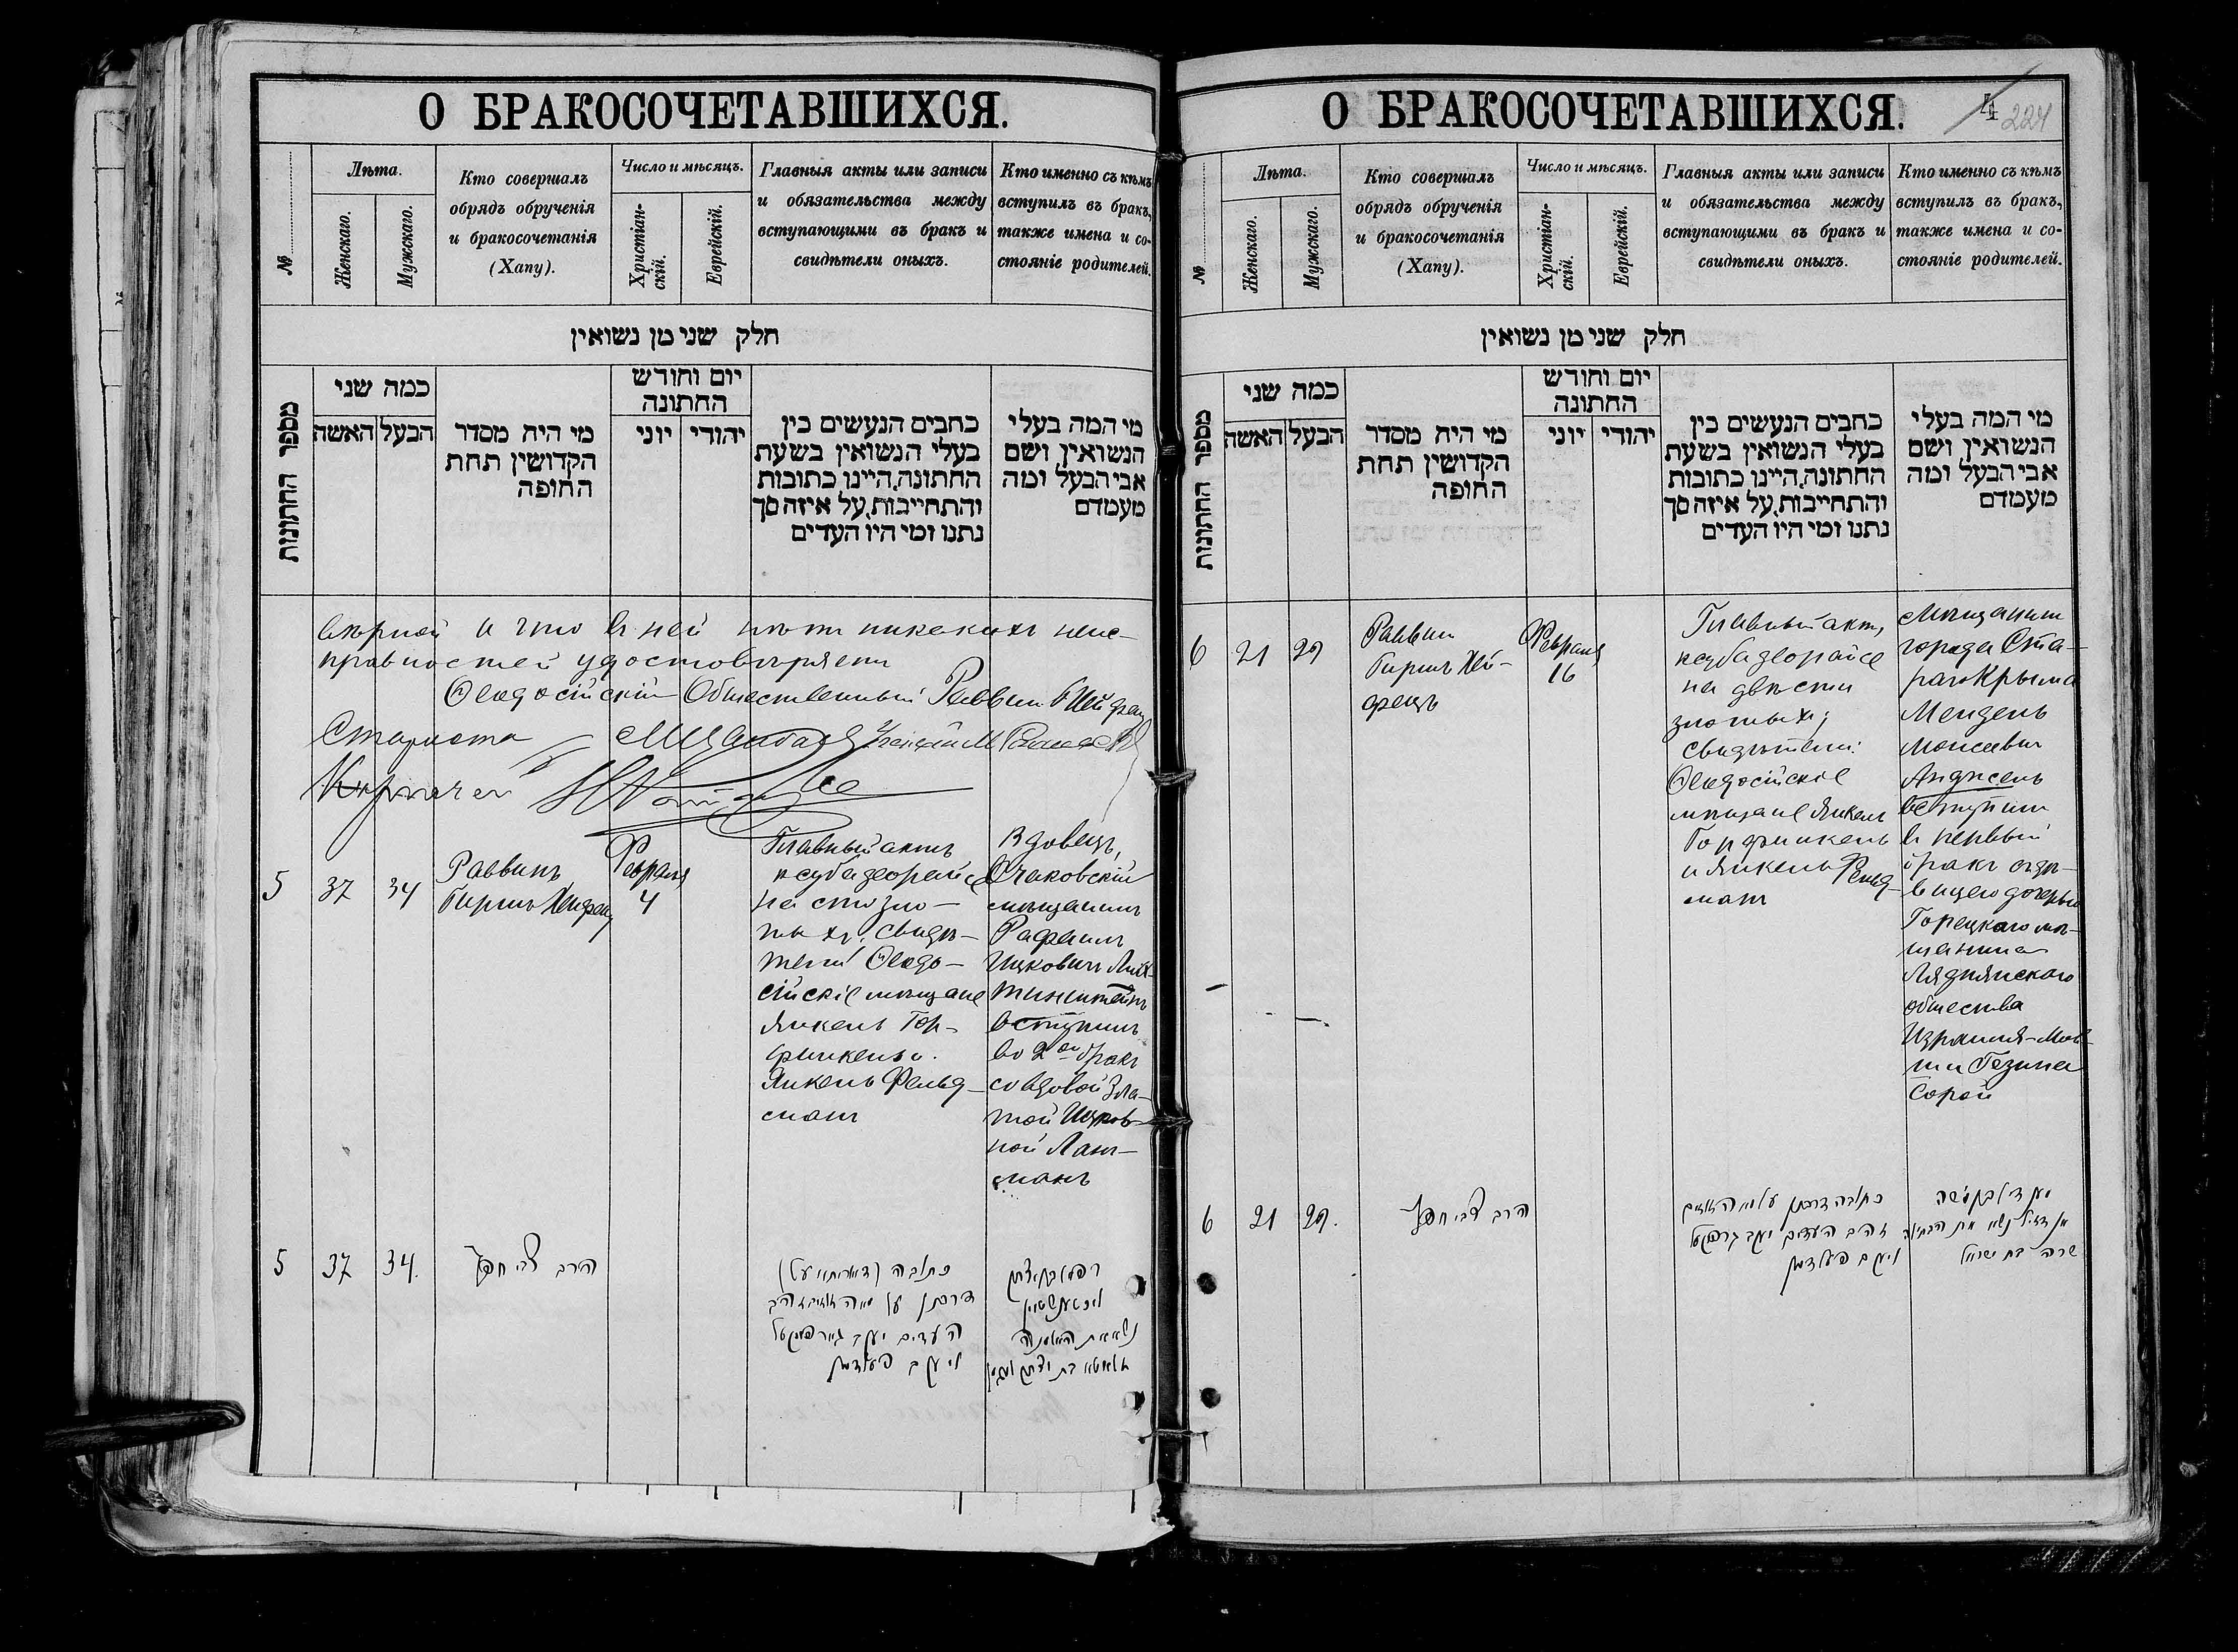 О БРАКОСОЧЕТАВШИХСЯ.
№
Лѣта.
Женскаго.
Мужскаго.
Кто совершалъ
обрядъ обрученія
и бракосочетанія
(Хапу).
Число и мѣсяцъ.
Христіан-
скій.
Еврейскій.
Главныя акты или записи
и обязательства между
вступающими въ бракъ и
свидѣтели оныхъ.
Кто именно съ кѣмъ
вступилъ въ бракъ,
также имена и со-
стояніе родителей.
חלק שני מן נשואין
מספר החתונות
כמה שני
האשה
הבעל
מי היה מסדר
הקדושין תחת
החופה
יום וחודש
החתונה
יוני
יהודי
כתבים הנעשים בין
בעלי הנשואין בשעת
החתונה, היינו כתובות
והתחייבות, על איזה סך
נתנו ומי היו העדים
מי המה בעלי
הנשואין ושם
אבי הבעל ומה
מעמדם
вѣрной и что въ ней нѣтъ никакихъ неис-
правностей удостовѣряетъ
Ѳеодосійскій Общественный Раввинъ
Староста
5
37
34
Раввинъ
Гиршъ Хейфецъ
Февраля
4
Главный актъ
ксуба деорайсе
на сто зло-
тыхъ; свидѣ-
тели Ѳеодо-
сійскіе мѣщане
Янкель Гор-
финкель и
Янкель Фельд-
манъ
Вдовецъ,
Очаковскій
мѣщанинъ
Рафаилъ
Ицковичъ Лих-
тинштейнъ
вступилъ
во 2ой бракъ
со вдовой Зла-
той Ицков-
ной Ланг-
манъ
5
37
34.
הרב צבי חפץ
כתובה
דרבנן על מאה
העדים יעקב
ויעקב פעלדמן
רפאל בן יצחק
О БРАКОСОЧЕТАВШИХСЯ.
4 224
№
Лѣта.
Женскаго.
Мужскаго.
Кто совершалъ
обрядъ обрученія
и бракосочетанія
(Хапу).
Число и мѣсяцъ.
Христіан-
скій.
Еврейскій.
Главныя акты или записи
и обязательства между
вступающими въ бракъ и
свидѣтели оныхъ.
Кто именно съ кѣмъ
вступилъ въ бракъ,
также имена и со-
стояніе родителей.
חלק שני מן נשואין
מספר החתונות
כמה שני
האשה
הבעל
מי היה מסדר
הקדושין תחת
החופה
יום וחודש
החתונה
יוני
יהודי
כתבים הנעשים בין
בעלי הנשואין בשעת
החתונה, היינו כתובות
והתחייבות, על איזה סך
נתנו ומי היו העדים
מי המה בעלי
הנשואין ושם
אבי הבעל ומה
מעמדם
6
21
29
Раввинъ
Гиршъ Хей-
фецъ
Февраля
16
Главный актъ,
ксуба деорайсе
на двѣсти
злотыхъ;
свидѣтели:
Ѳеодосійскіе
мѣщане Янкель
Горфинкель
и Янкель Фельд-
манъ
Мѣщанинъ
города Ста-
раго Крыма
Мендель
Моисеевичъ
вступилъ
въ первый
бракъ съ дѣ-
вицею дочерью
Горецкаго мѣ-
щанина
Ляднянскаго
общества
Израиля-Мов-
ши Гезина
Сорой
6
21
29.
הרב צבי חפץ
כתובה דרבנן
העדים יעקב
ויעקב פעלדמן
שרה בת ישראל